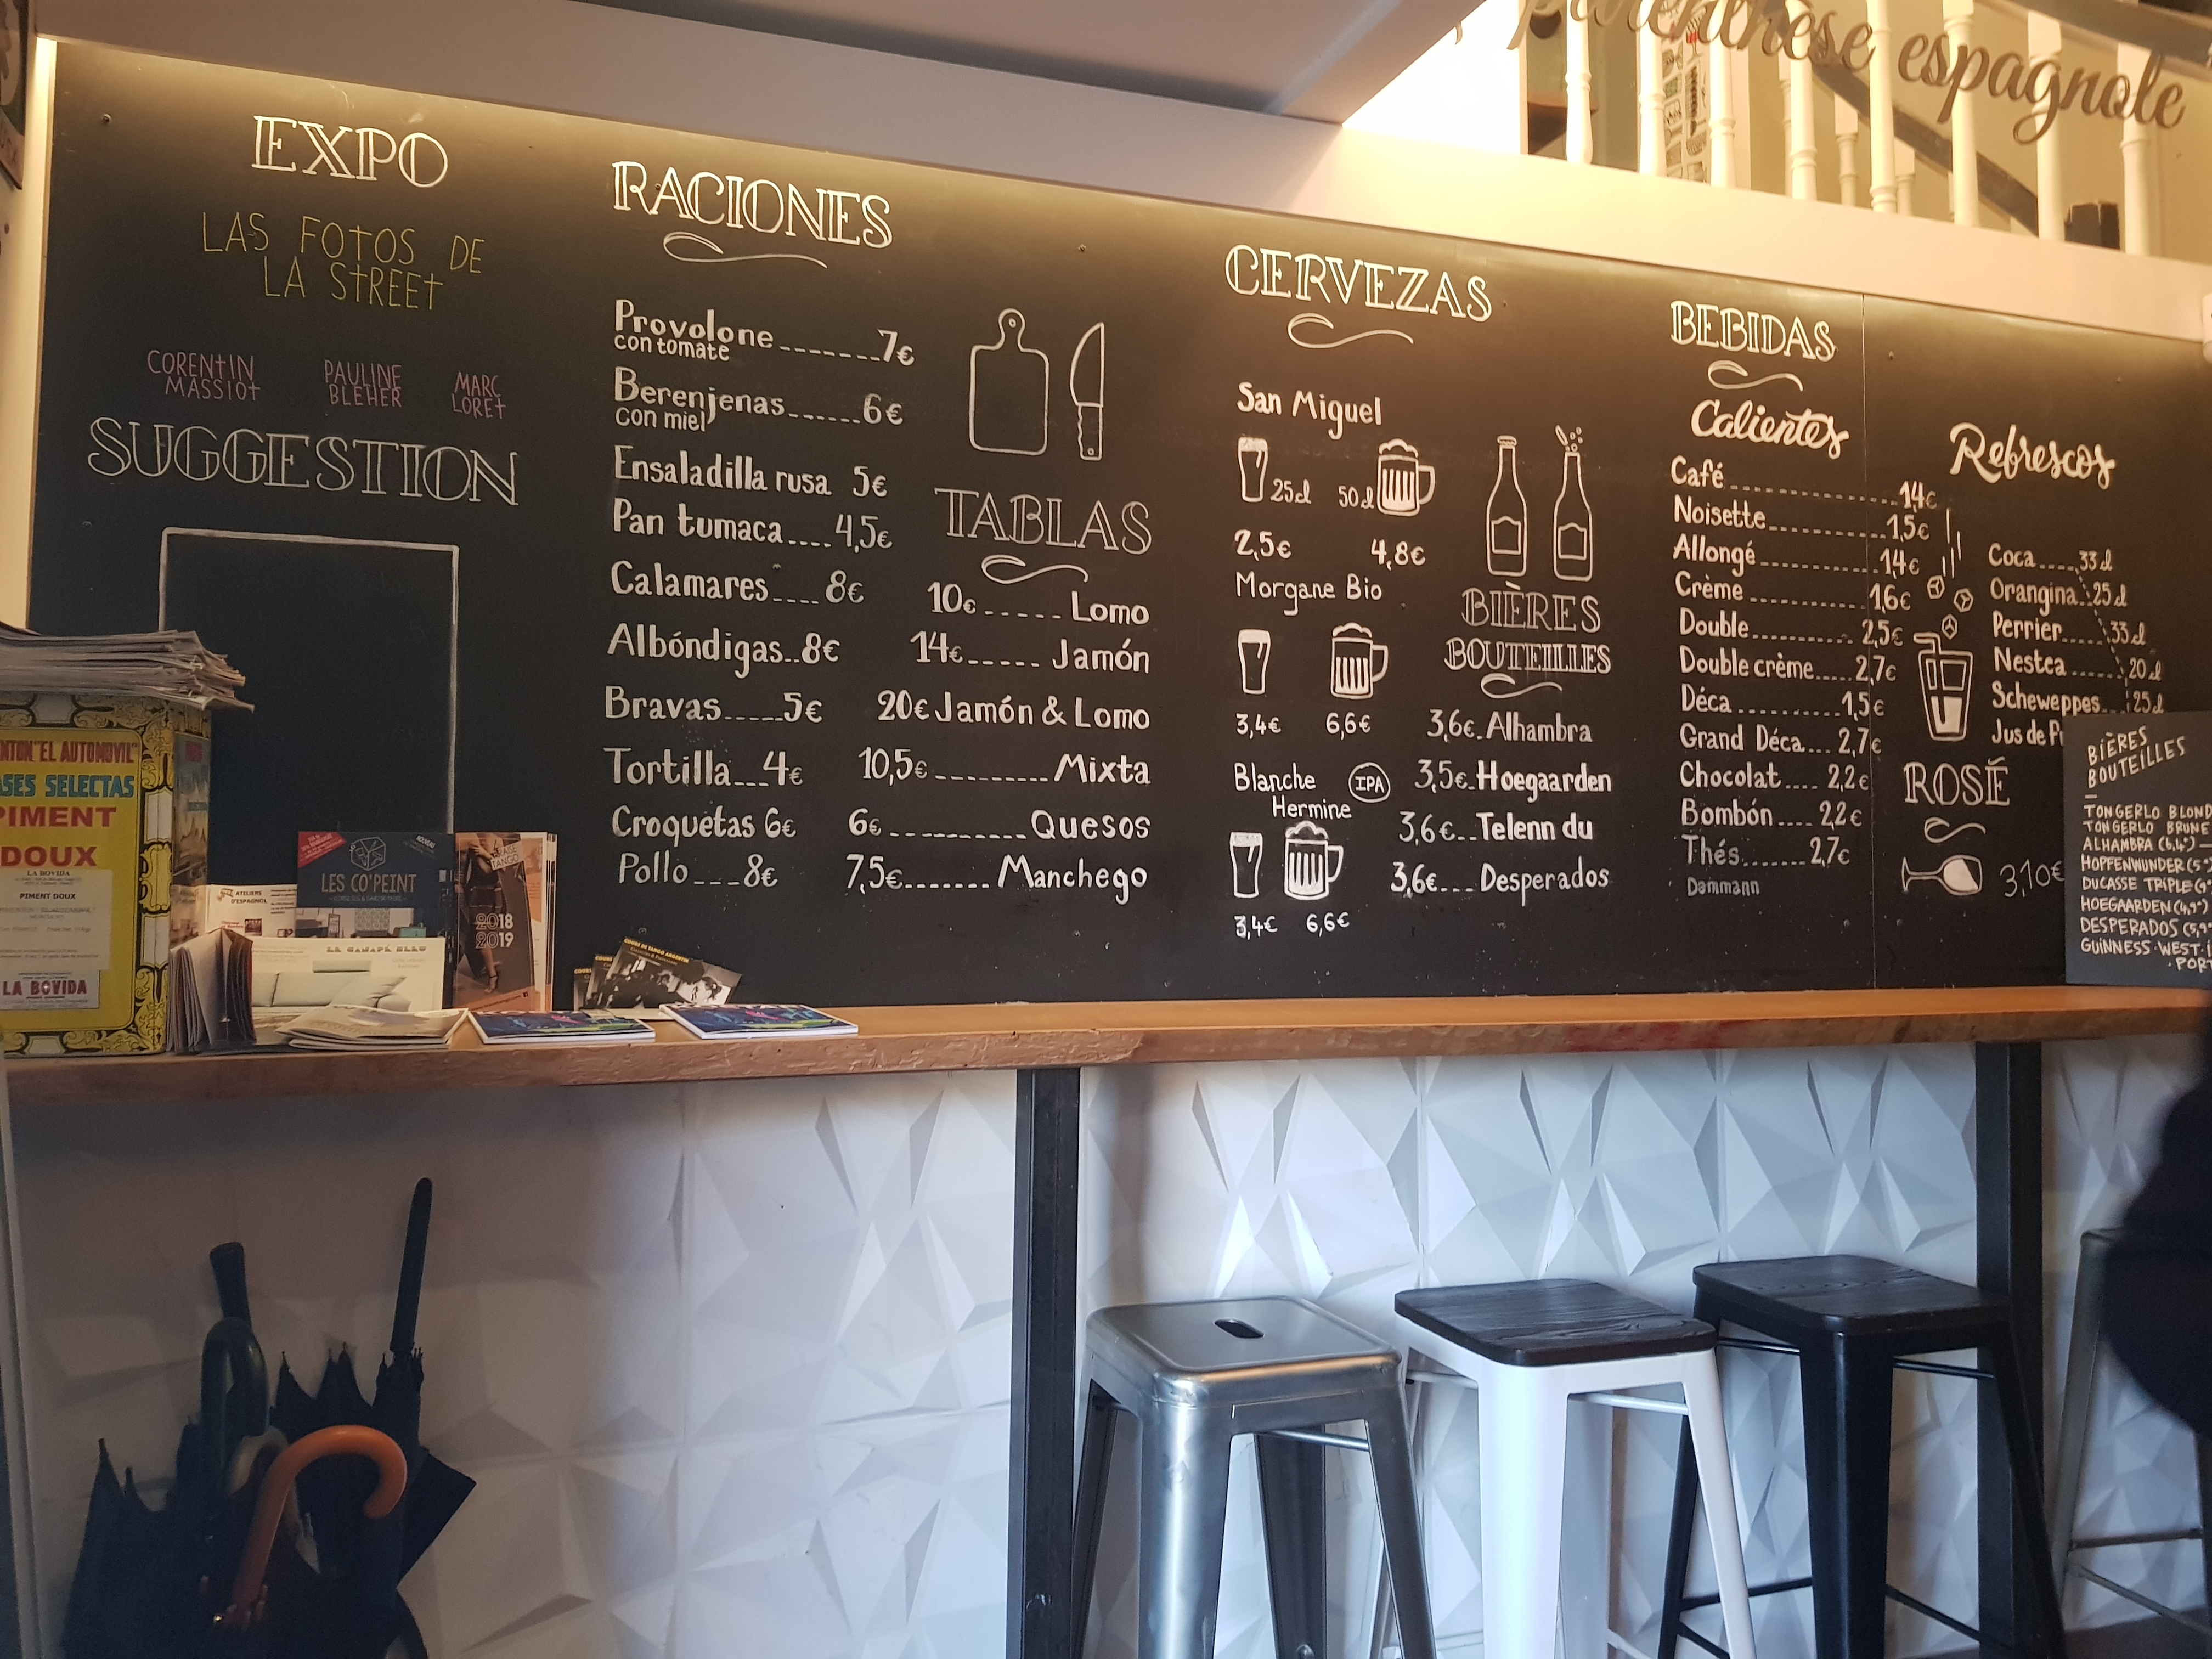 parenthèse espagnole
EXPO
LAS FOTOS DE
LA STREET
CORENTIN
MASSIOT
PAULINE
BLEHER
MARC
LORET
SUGGESTION
RACIONES
Provolone.......7€
con tomate
Berenjenas......6€
con miel
Ensaladilla rusa 5€
Pan tumaca....4,5€
Calamares....8€
Albóndigas..8€
Bravas.....5€
Tortilla...4€
Croquetas 6€
Pollo...8€
TABLAS
10€......Lomo
14€......Jamón
20€ Jamón & Lomo
10,5€.........Mixta
6€...........Quesos
7,5€.......Manchego
CERVEZAS
San Miguel
25cl 50cl
2,5€ 4,8€
Morgane Bio
3,4€ 6,6€
Blanche IPA
Hermine
3,4€ 6,6€
BIÈRES
BOUTEILLES
3,6€.Alhambra
3,5€..Hoegaarden
3,6€..Telenn du
3,6€...Desperados
BEBIDAS
Calientes
Café..................1,4€
Noisette.............1,5€
Allongé..............1,4€
Crème...............1,6€
Double..............2,5€
Double crème.....2,7€
Déca...........1,5€
Grand Déca...2,7€
Chocolat....2,2€
Bombón....2,2€
Thés.......2,7€
Dammann
Refrescos
Coca....33cl
Orangina..25cl
Perrier.....33cl
Nestea.......20cl
Scheweppes...25cl
Jus de
ROSÉ
3,10€
BIÈRES
BOUTEILLES
TONGERLO BLOND
TONGERLO BRUNE
ALHAMBRA (6,4°)
HOPFENWUNDER
DUCASSE TRIPLE
HOEGAARDEN (4,9°)
DESPERADOS (5,9°
GUINNESS WEST
"EL AUTOMOVIL"
SELECTAS
PIMENT
DOUX
LA BOVIDA
PIMENT DOUX
LA BOVIDA
ATELIERS
D'ESPAGNOL
LES CO'PEINT
LE CANAPÉ BLEU
TANGO
2018
2019
COURS DE TANGO ARGENTIN